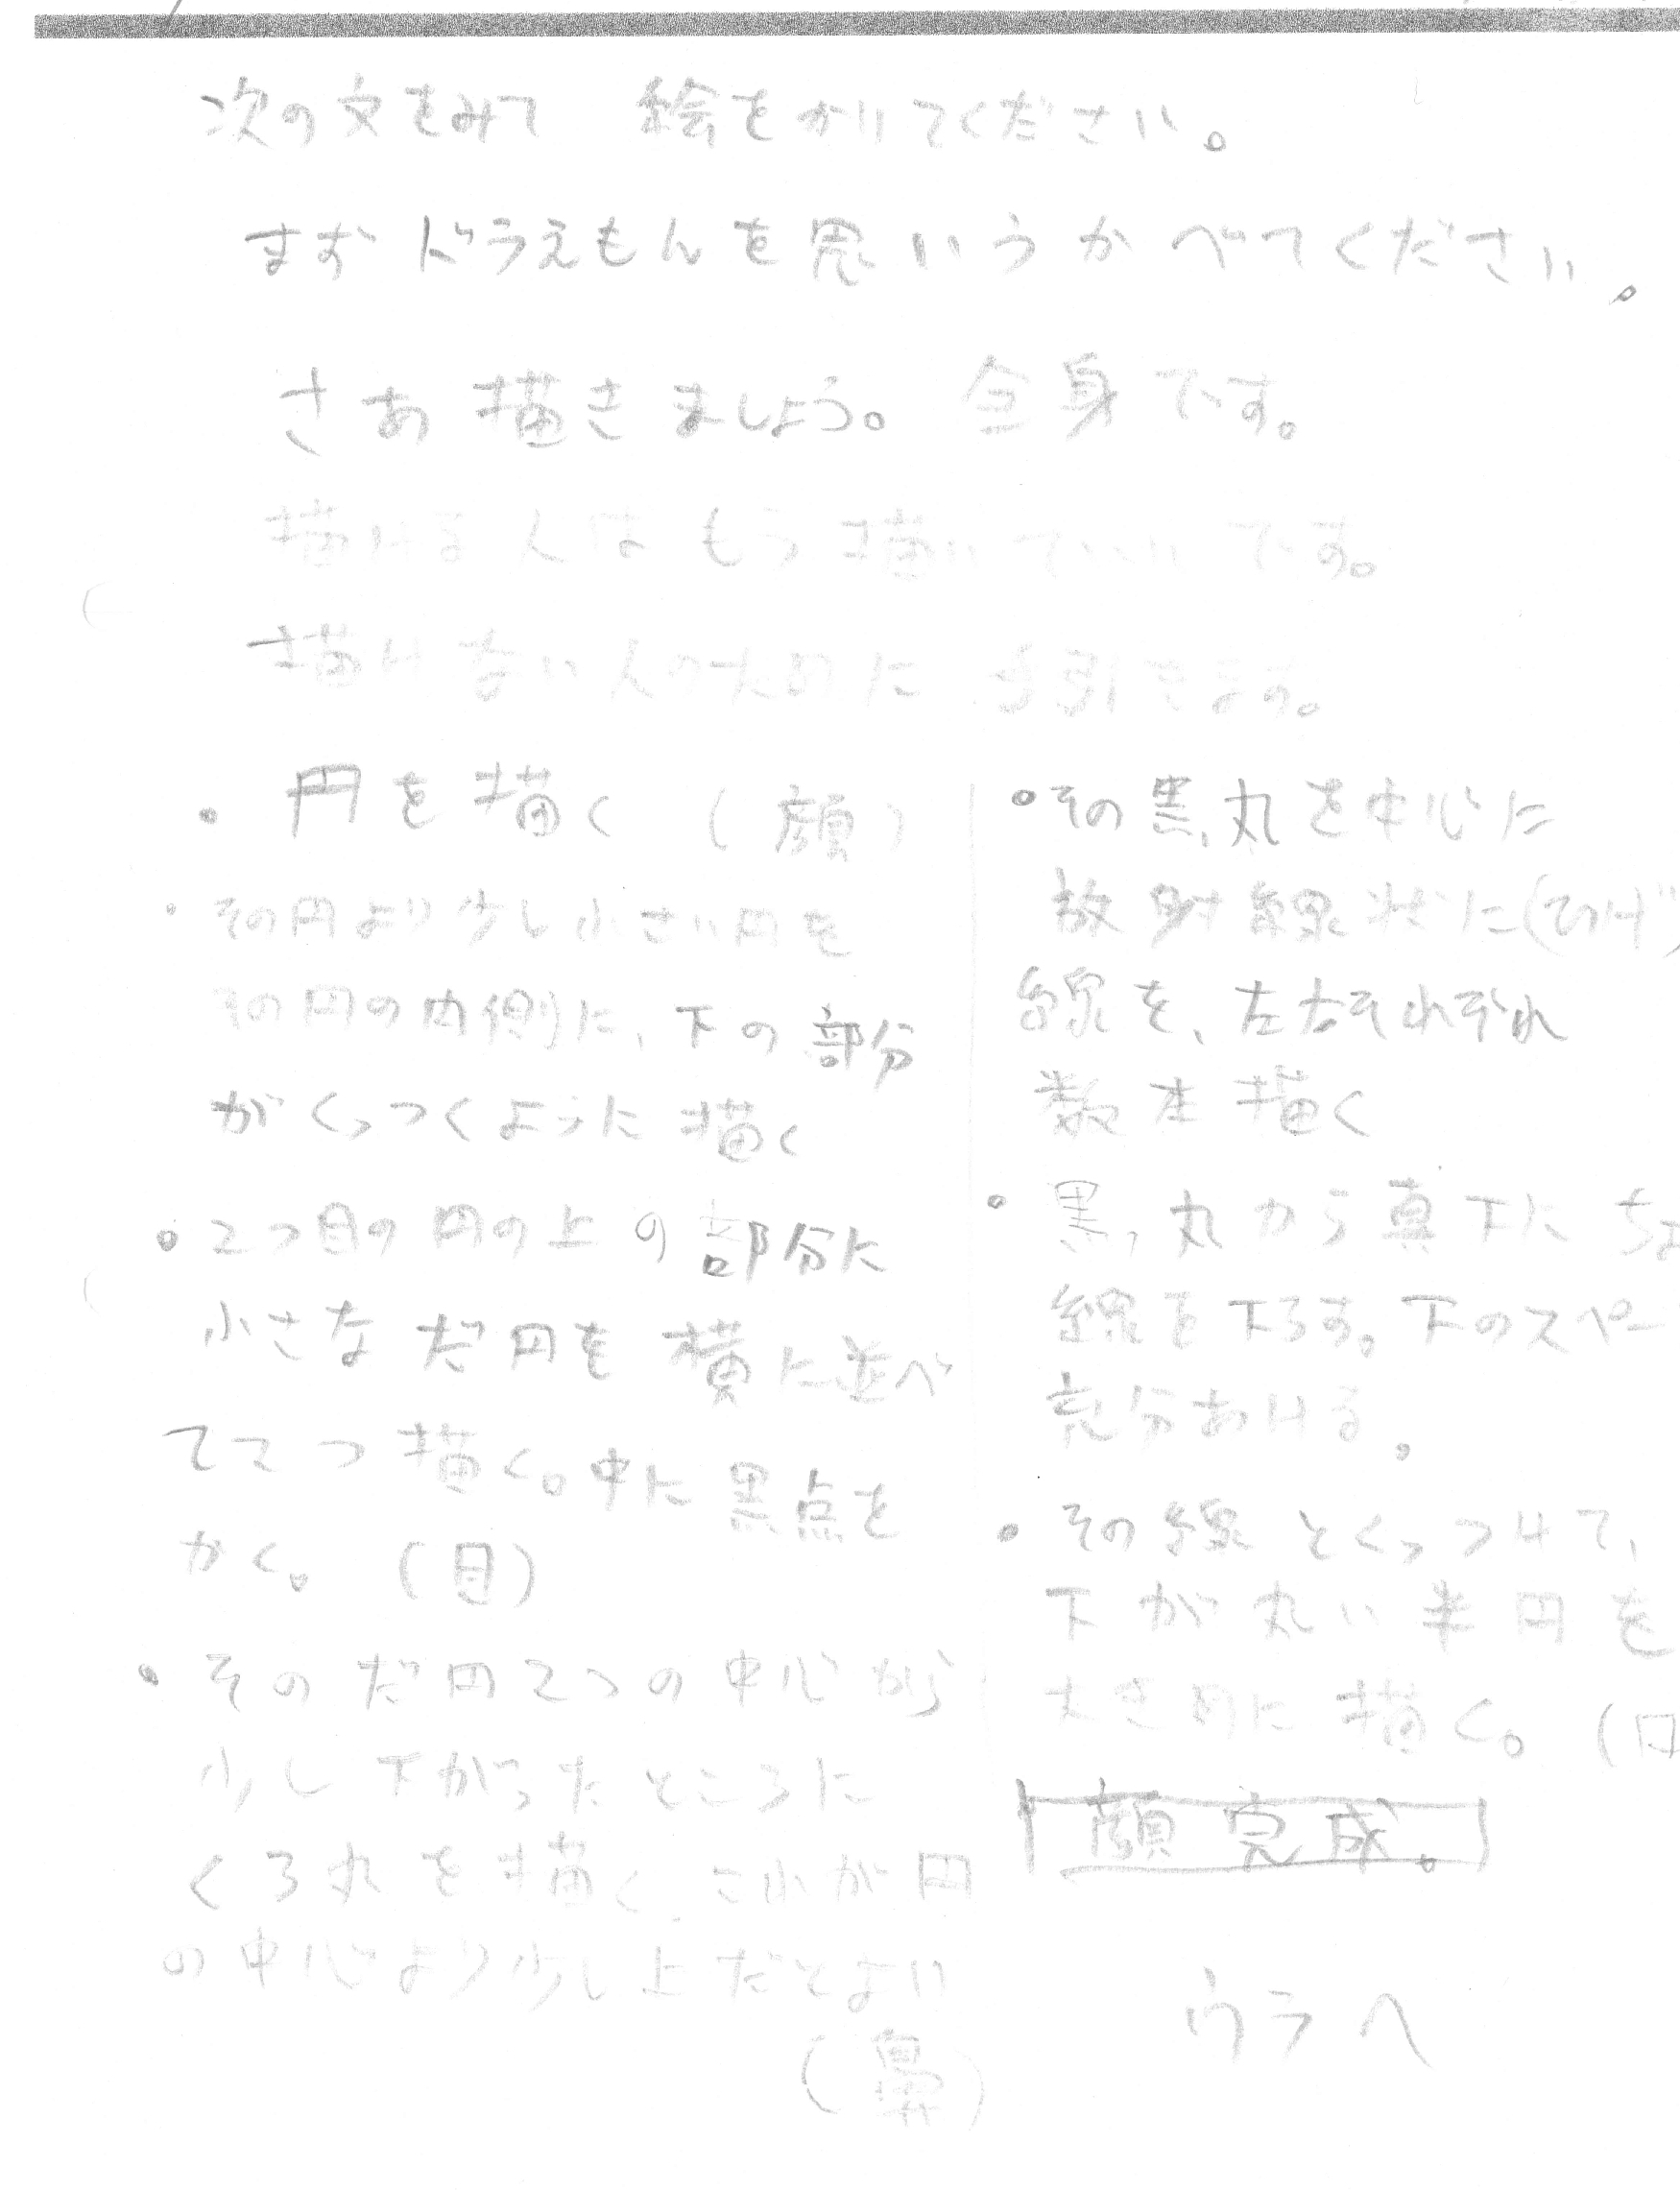 次の文をみて 絵をかいてください。
まず ドラえもんを思いうかべてください。
さあ描きましょう。全身です。
描ける人はもう描いていいです。
描けない人のために 手引きます。
・円を描く (顔)
・その円より少し小さい円を
その円の内側に、下の部分
がくっつくように描く
・2つ目の円の上の部分に
小さなだ円を横に並べ
て2つ描く。中に黒点を
かく。(目)
・そのだ円2つの中心から
少し下がったところに
くろ丸を描く、これが円
の中心より少し上だとよい
(鼻)
・その黒丸を中心に
放射線状に(ひげ)
線を、左右それぞれ
数本描く
・黒丸から真下にちょ
線を下ろす。下のスペー
充分あける。
・その線とくっつけて、
下が丸い半円を
大きめに描く。(口
顔完成。
ウラへ